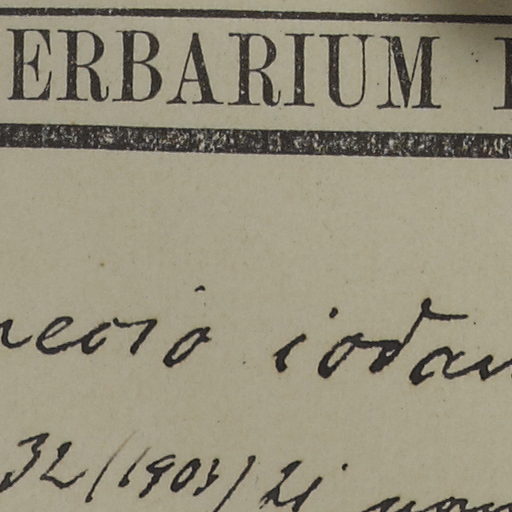 ERBARIUM
necio iodan
32 (1903) 21 nom